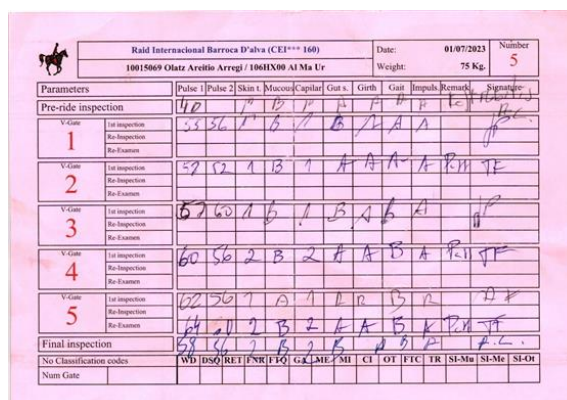 Raid Internacional Barroca D'alva (CEI*** 160) Date: 01/07/2023 Number
10015069 Olatz Areitio Arregi / 106HX00 Al Ma Ur Weight: 75 Kg. 5
Parameters Pulse 1 Pulse 2 Skin t. Mucous Capilar Gut s. Girth Gait Impuls. Remark Signature
Pre-ride inspection 40 B A A A
V-Gate 1 1st inspection 53 56 B B A A
Re-Inspection
Re-Examen
V-Gate 2 1st inspection 52 1 B 1 A A A A
Re-Inspection
Re-Examen
V-Gate 3 1st inspection 57 60 1 B 1 B A B A
Re-Inspection
Re-Examen
V-Gate 4 1st inspection 60 56 2 B 2 A A B A
Re-Inspection
Re-Examen
V-Gate 5 1st inspection 62 56 1 A 1 B
Re-Inspection
Re-Examen 64 2 B 2 A A B
Final inspection 58 56 2 B 2 B
No Classification codes WD DSQ RET FNR FTQ GA ME MI CI OT FTC TR SI-Mu SI-Me SI-Ot
Num Gate